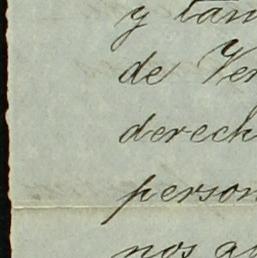 y tan
de Ver
derech
person
nos